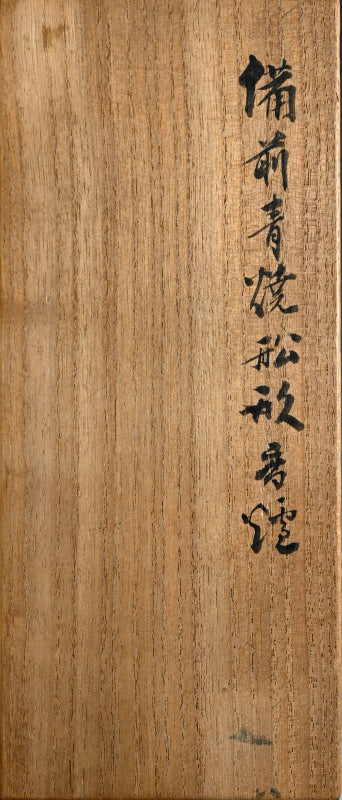 備前青焼舩形香爐